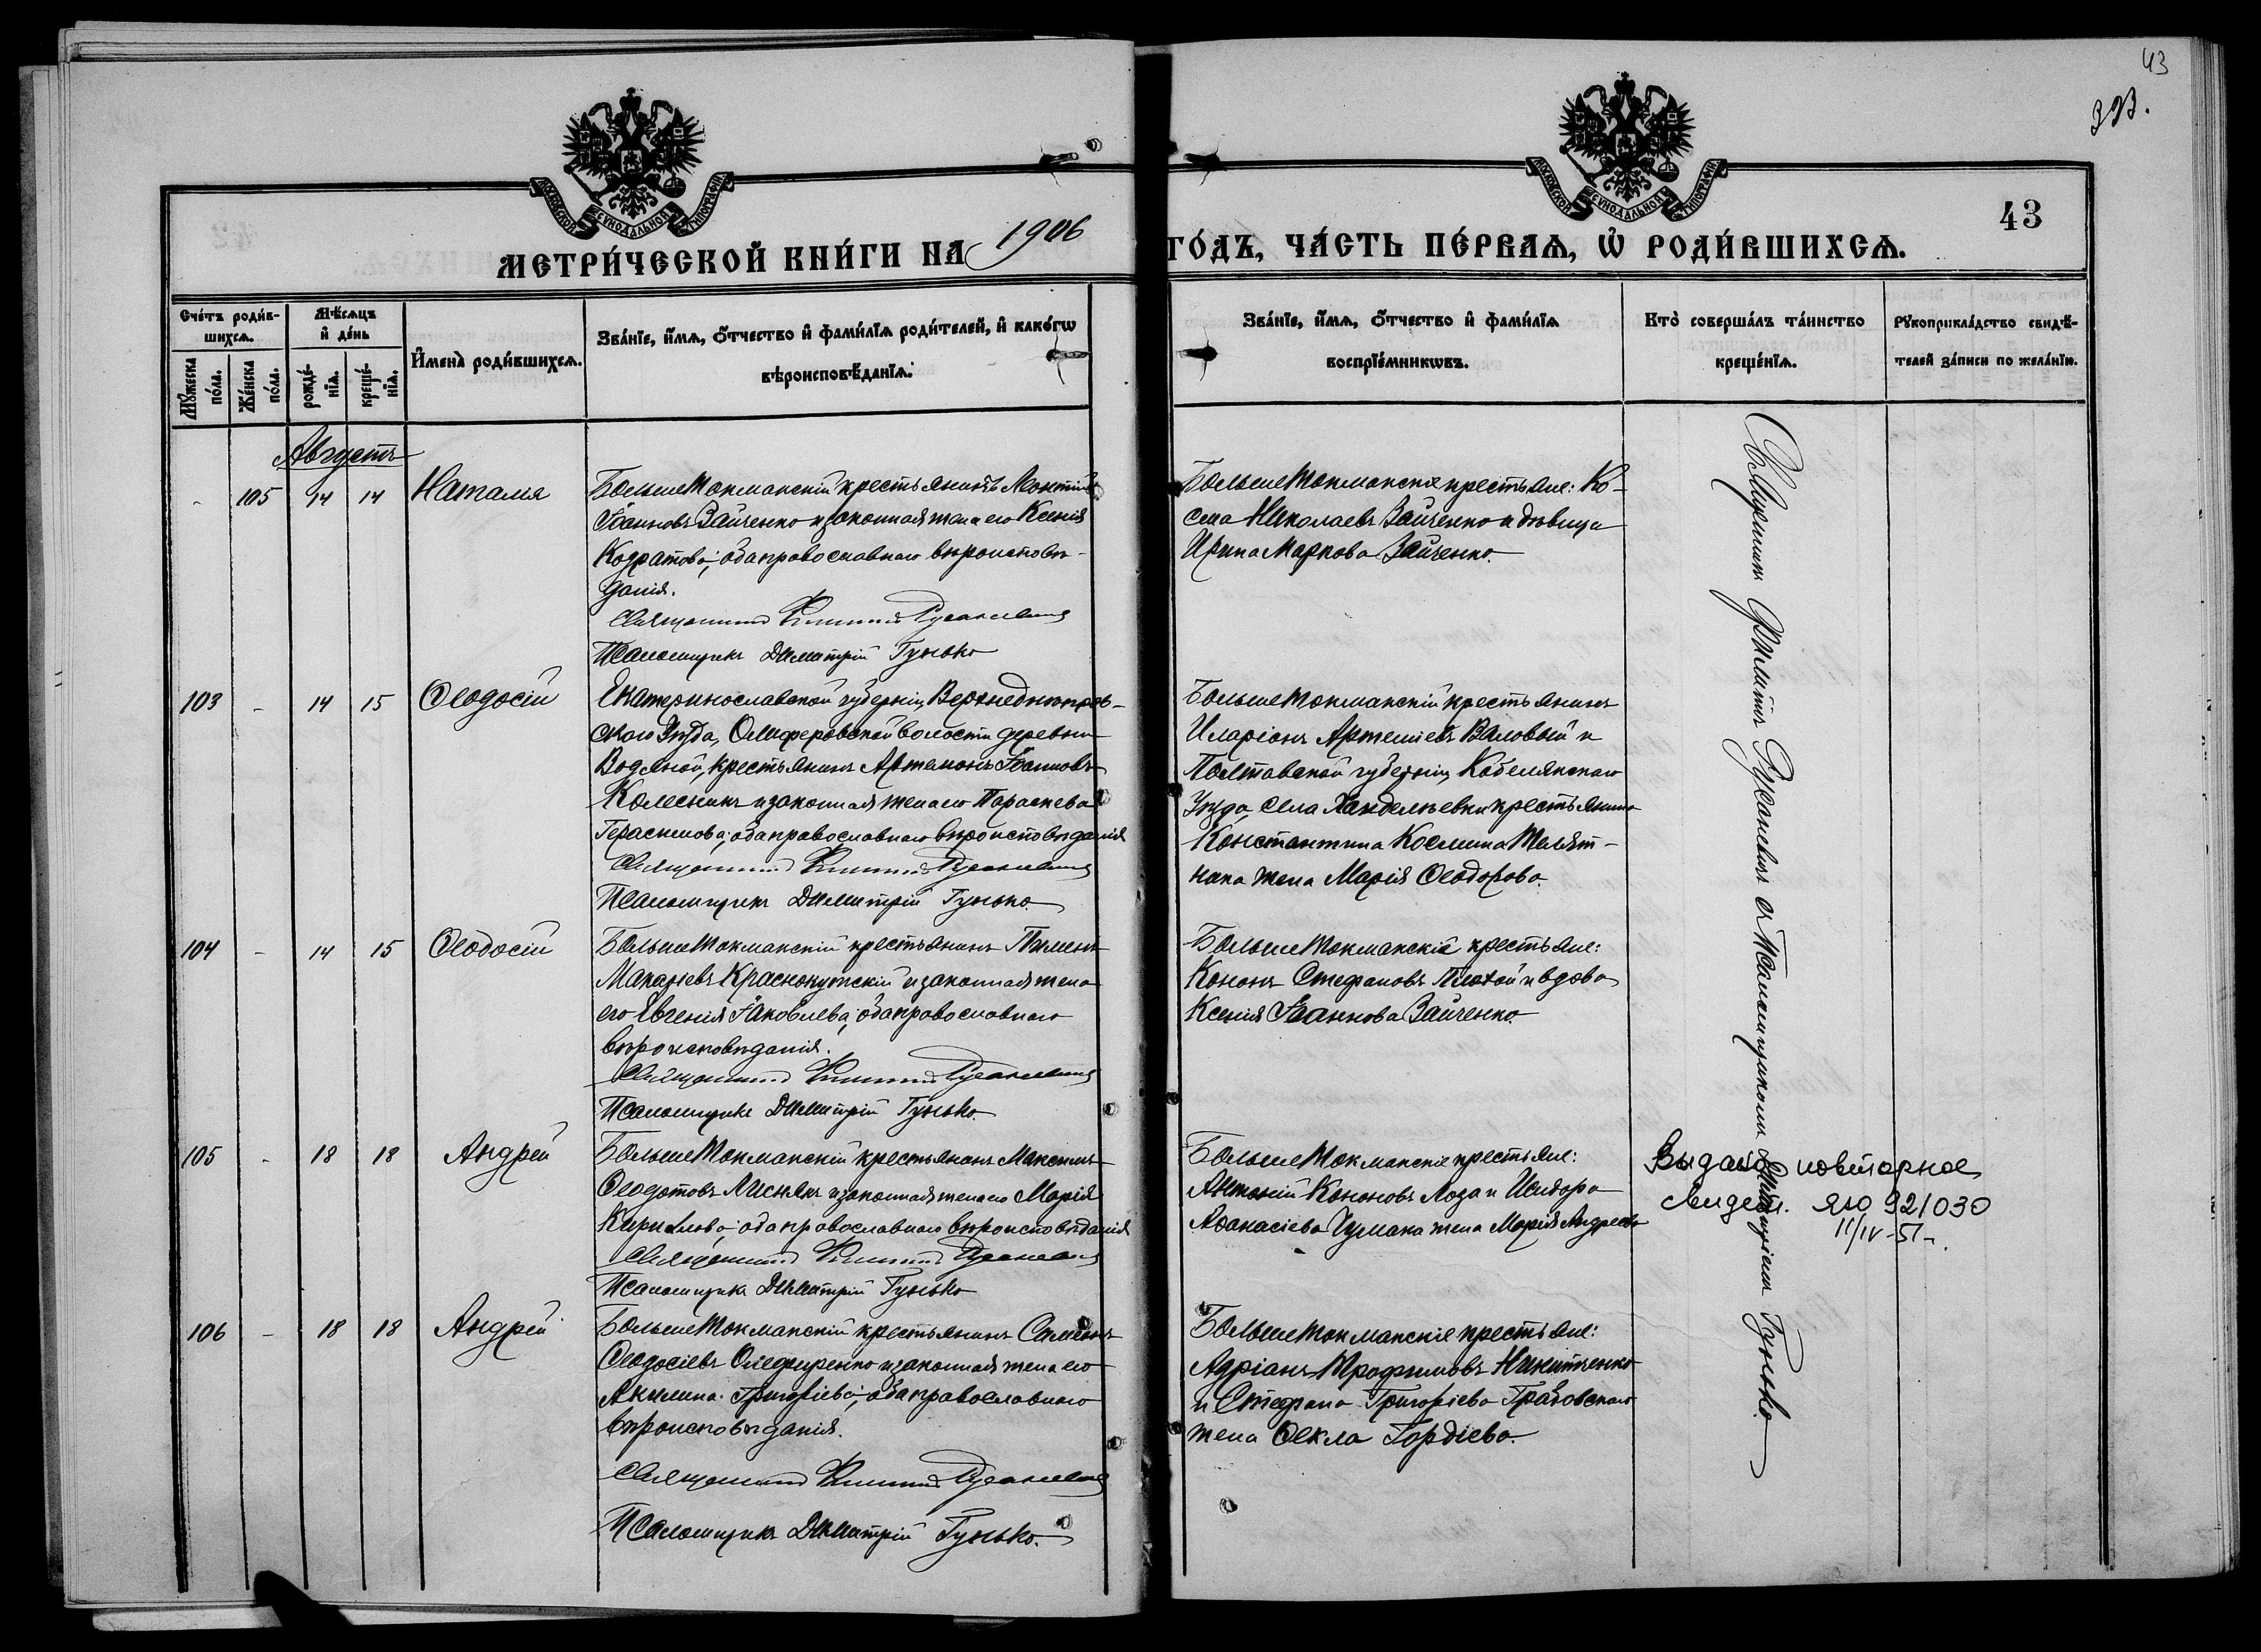 43
393.
МОСКОВСКОЙ СѴНОДАЛЬНОЙ ТИПОГРАФІИ
МОСКОВСКОЙ СѴНОДАЛЬНОЙ ТИПОГРАФІИ
43
МЕТРИ́ЧЕСКОЙ КНИ́ГИ НА 1906 ГО́ДЪ, ЧА́СТЬ ПЕ́РВАѦ, Ѡ҆ РОДИ́ВШИХСѦ.
Сче́тъ роди́в-
шихсѧ.
Мꙋ́жеска по́ла.
Же́нска по́ла.
Мѣ́сѧцъ
и҆ де́нь
рожде́-
нїѧ.
креще́-
нїѧ.
И҆мена̀ роди́вшихсѧ.
Зва́нїе, и҆́мѧ, ѻ҆́тчество и҆ фами́лїѧ роди́телей, и҆ како́гѡ
вѣроисповѣ́данїѧ.
Зва́нїе, и҆́мѧ, ѻ҆́тчество и҆ фами́лїѧ
воспрїе́мникѡвъ.
Кто̀ соверша́лъ та́инство
креще́нїѧ.
Рꙋкоприкла́дство свидѣ́-
телей за́писи по жела́нїю.
Августъ
- 105 14 14 Наталія
Большетокмакскій крестьянинъ Леонтій
Іоанновъ Зайченко и законная жена его Ксенія
Кодратова; оба православнаго вѣроисповѣ-
данія.
Священникъ Филиппъ Русаневичъ
Псаломщикъ Димитрій Гунько
Большетокмакскіе крестьяне: Ко-
сма Николаевъ Зайченко и дѣвица
Ирина Маркова Зайченко.
103 - 14 15 Ѳеодосій
Екатеринославской губерніи Верхнеднѣпров-
скаго Уѣзда, Олиферовской волости деревни
Водяной, крестьянинъ Артемонъ Іоанновъ
Колесникъ и законная жена его Параскева
Герасимова; оба православнаго вѣроисповѣданія
Священникъ Филиппъ Русаневичъ
Псаломщикъ Димитрій Гунько.
Большетокмакскій крестьянинъ
Иларіонъ Артеміевъ Валовый и
Полтавской губерніи, Кобелякскаго
Уѣзда, села Ханделѣевки крестьянина
Константина Космина Телят-
ника жена Марія Ѳеодорова.
104 - 14 15 Ѳеодосій
Большетокмакскій крестьянинъ Пименъ
Макаріевъ Краснокутскій и законная жена
его Евгенія Іаковлева; оба православнаго
вѣроисповѣданія.
Священникъ Филиппъ Русаневичъ
Псаломщикъ Димитрій Гунько.
Большетокмакскіе крестьяне:
Кононъ Стефановъ Плохой и вдова
Ксенія Іоаннова Зайченко.
105 - 18 18 Андрей
Большетокмакскій крестьянинъ Максимъ
Ѳеодотовъ Лиснякъ и законная жена его Марія
Кириллова; оба православнаго вѣроисповѣданія
Священникъ Филиппъ Русаневичъ
Псаломщикъ Димитрій Гунько
Большетокмакскіе крестьяне:
Антоній Кононовъ Лоза и Исидора
Аѳанасіева Чумака жена Марія Андреева
Выдано повторное
свидет. ЯЮ 921030
11/IV-51-.
106 - 18 18 Андрей
Большетокмакскій крестьянинъ Симеонъ
Ѳеодосіевъ Олефиренко и законная жена его
Акилина Григоріева; оба православнаго
вѣроисповѣданія.
Священникъ Филиппъ Русаневичъ
Псаломщикъ Димитрій Гунько.
Большетокмакскіе крестьяне:
Адріанъ Трофимовъ Никитченко
и Стефана Григоріева Грабовскаго
жена Ѳекла Гордіева.
Священникъ Филиппъ Русаневичъ съ Псаломщикомъ Димитріемъ Гунько.